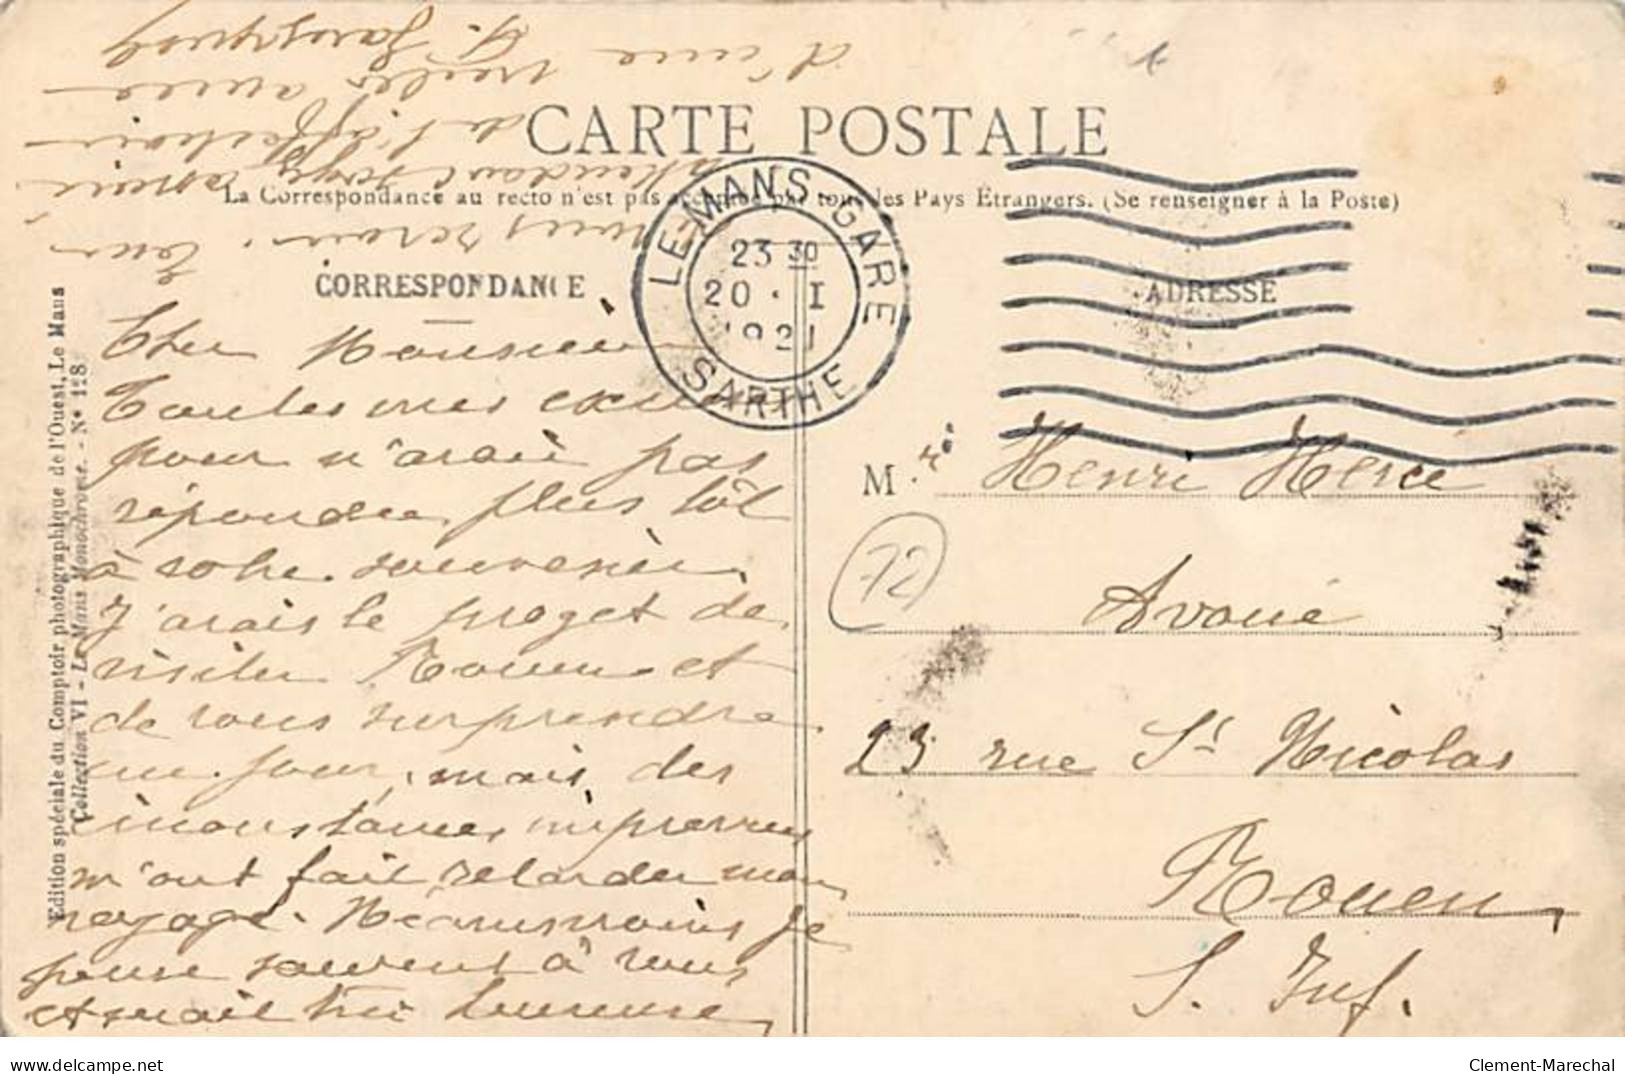 CARTE POSTALE
La Correspondance au recto n'est pas acceptée par tous les Pays Étrangers. (Se renseigner à la Poste)
CORRESPONDANCE
ADRESSE
LE MANS-GARE
23 30
20 · I
1921
SARTHE
Edition spéciale du Comptoir photographique de l'Ouest, Le Mans
Collection VI - Le Mans Monochrome. - N° 128
Cher Monsieur
Toutes mes excuses
pour n'avoir pas
répondre plus tôt
à votre souvenir
J'avais le projet de
visiter Rouen et
de vous surprendre
un jour, mais des
inconstances imprévues
m'ont fait retarder mon
voyage. Néanmoins je
pense souvent à vous
et serait très heureuse
vous revoir. Cher
attendant
de l'affection
d'une vieille amie
M. Henri
Avoué
23 rue St Nicolas
Rouen
S. Inf.
72
delcampe.net
Clement-Marechal